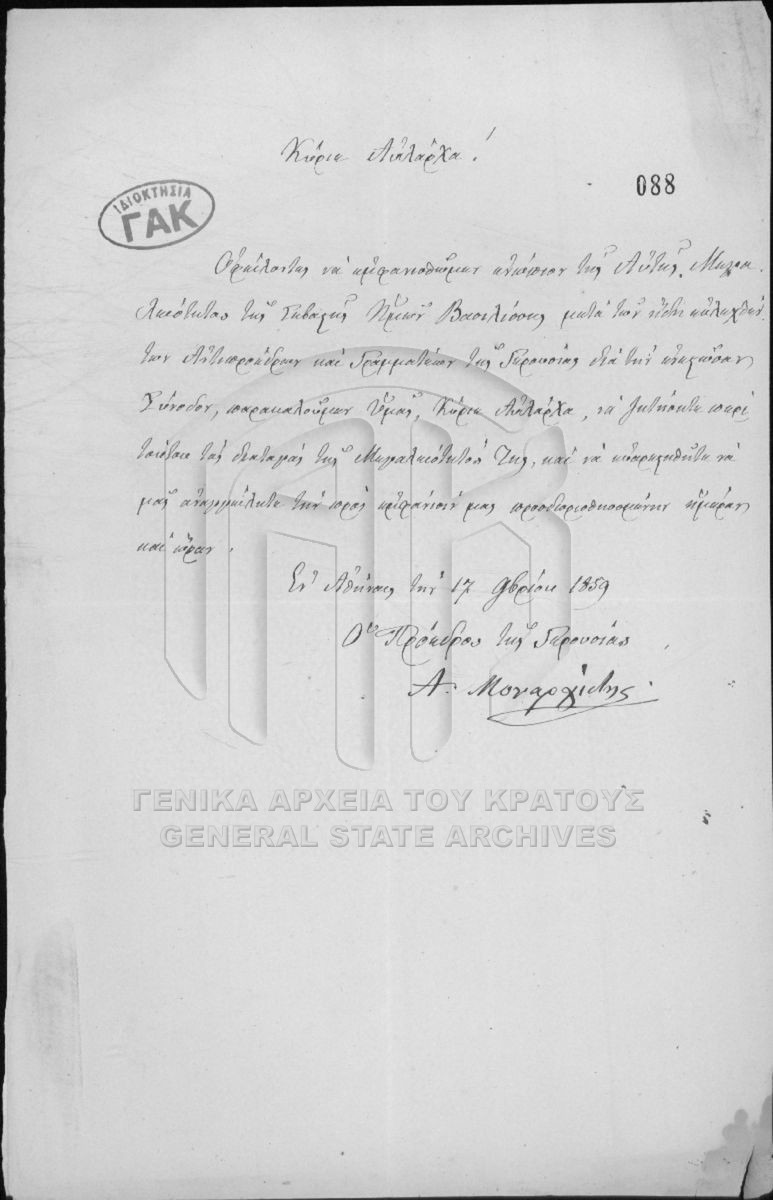 Κύριε Αὐλάρχα!
088
ΙΔΙΟΚΤΗΣΙΑ
ΓΑΚ
Ὀφείλοντες νὰ ἐμφανισθῶμεν ἐνώπιον τῆς Αὐτῆς Μεγα
λειότητος τῆς Σεβαστῆς Ἡμῶν Βασιλίσσης μετὰ τῶν ἤδη ἐκλεχθέν
των Ἀντιπροέδρων καὶ Γραμματέων τῆς Γερουσίας διὰ τὴν
Σύνοδον, παρακαλοῦμεν Ὑμᾶς, Κύριε Αὐλάρχα, νὰ ζητήσητε περὶ
τούτου τὰς διαταγὰς τῆς Μεγαλειότητός Της, καὶ νὰ εὐαρεστηθῆτε νὰ
μᾶς ἀναγγείλητε τὴν πρὸς ἐμφάνισίν μας προσδιορισθησομένην ἡμέραν
καὶ ὥραν.
Ἐν Ἀθήναις τὴν 17 9βρίου 1859
Ὁ Πρόεδρος τῆς Γερουσίας
Α. Μοναρχίδης
ΓΕΝΙΚΑ ΑΡΧΕΙΑ ΤΟΥ ΚΡΑΤΟΥΣ
GENERAL STATE ARCHIVES